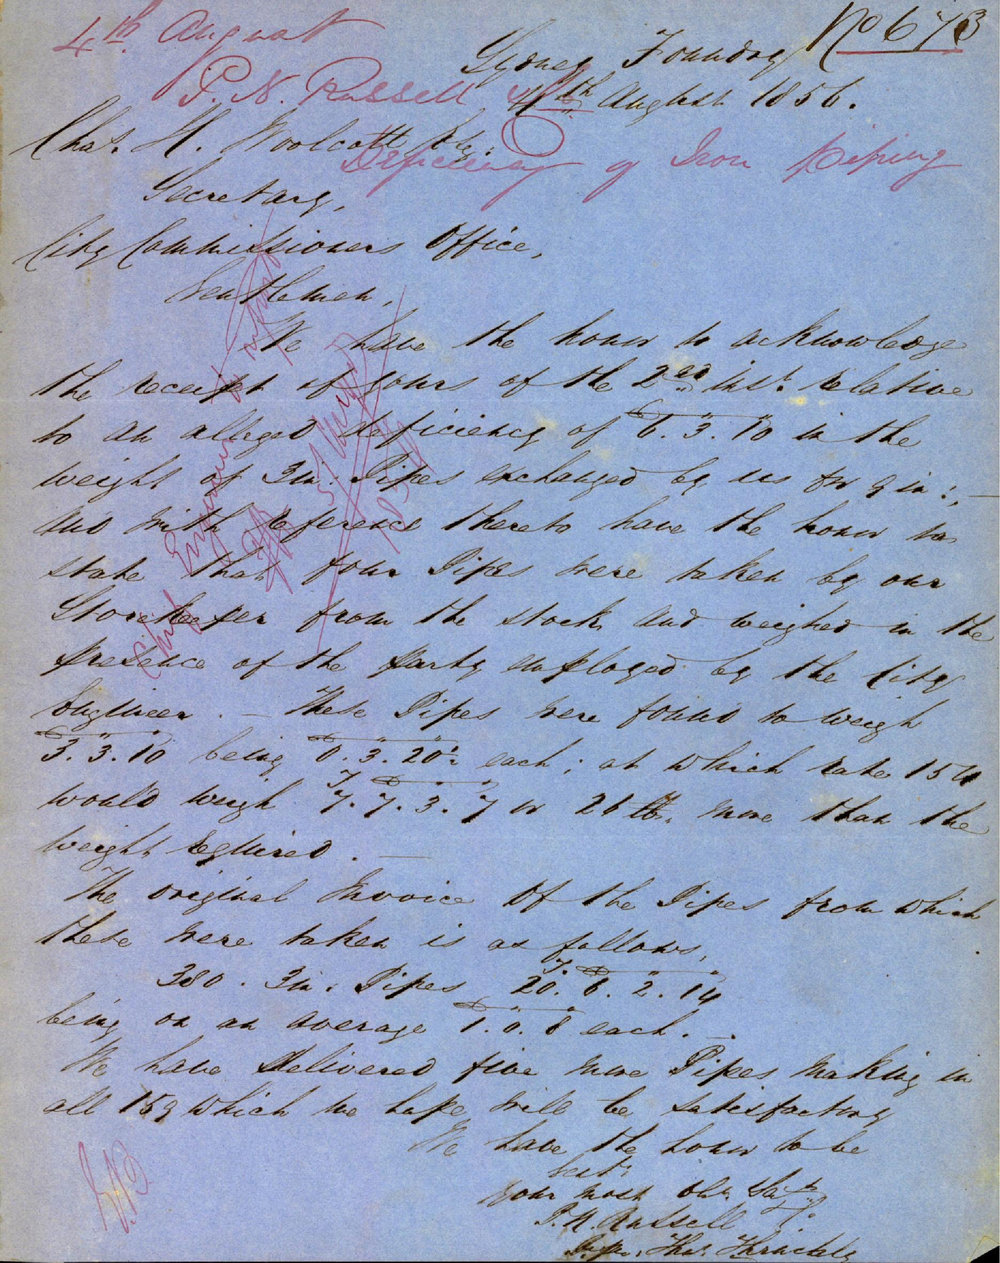 No 673
4th August
P. N. Russell & Co
Deficiency of Iron Piping
Sydney Foundry
4th August 1856.
Chas. H. Woolcott Esq.
Secretary,
City Commissioners Office,
Gentlemen,
We have the honor to acknowledge
the receipt of yours of the 2nd inst. relative
to an alleged deficiency of 6. 3. 10 in the
weight of 3in. Pipes exchanged by us for 9 in:, —
and with reference thereto have the honor to
state that four Pipes were taken by our
Storekeeper from the stock and weighed in the
presence of the party employed by the City
Engineer. — These Pipes were found to weigh
3. 3. 10 being 0. 3. 20½ each; at which rate 154
would weigh T 7. 7. 3. 7 or 26 lb. more than the
weight required. —
The original Invoice of the Pipes from which
these were taken is as follows,
380. 3in. Pipes T 20. 8. 2. 14
being on an average 1. 0. 8 each. —
We have delivered five more Pipes making in
all 159 which we hope will be satisfactory
We have the honor to be
Gent:
Your most obt. Servts
P. N. Russell & Co.
p. pro. Thos.
Chief Engineer